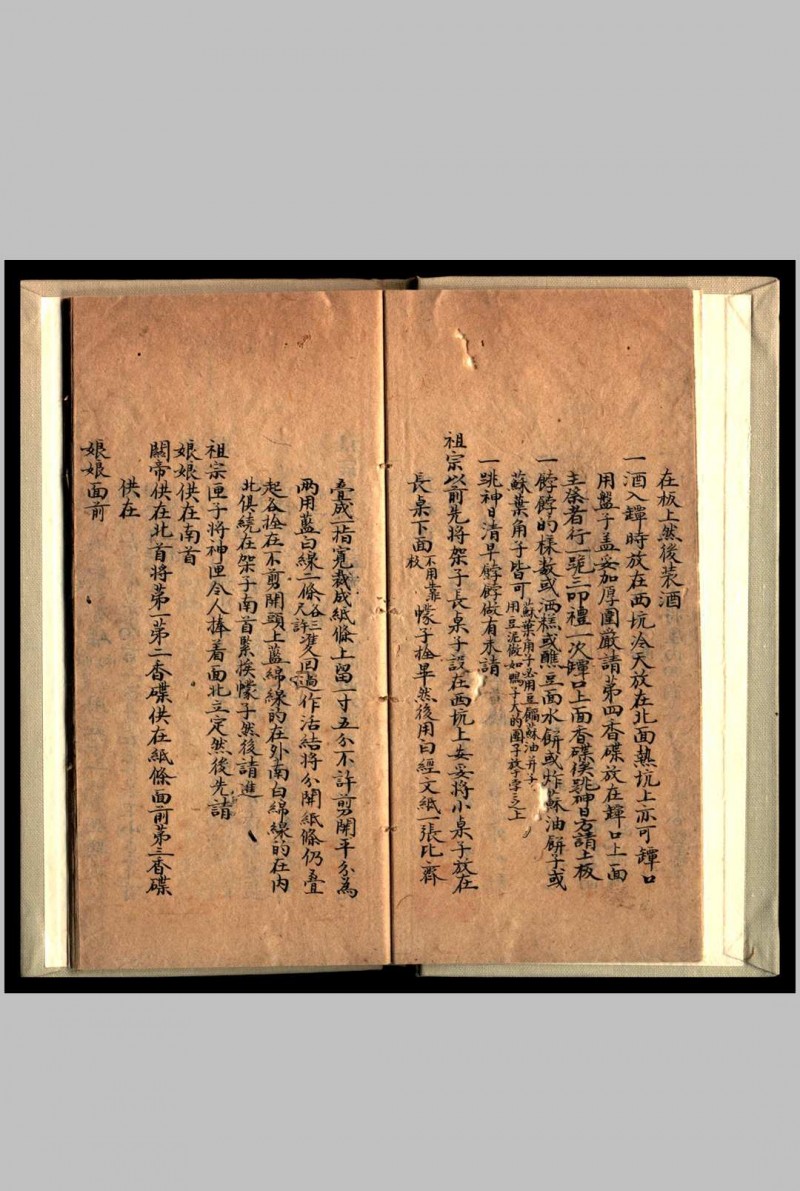 在板上然後裝酒
一酒入罈時放在西炕冷天放在北面熱炕上亦可罈口
用盤子盖妥加厚圍嚴請第四香碟放在罈口上面
主祭者行一跪三叩禮一次罈口上面香碟俟跳神日方請上板
一餑餑的樣數或洒糕或醮豆面水餅或炸蘇油餅子或
蘇葉角子皆可蘇葉角子必用豆餡蘇油弄子
用豆泥做如鴨子大的團子
一跳神日清早餑餑做有未請
祖宗以前先將架子長桌子設在西炕上妥妥將小桌子放在
長桌下面不用靠枚幪子拴畢然後用白經文紙一張比齊
叠成一指寬裁成紙條上留一寸五分不許剪開平分為
兩用藍白線二條各三尺許雙回過作活結將分開紙條仍叠
起各拴在不剪開頭上藍綿線的在外南白綿線的在内
北俱繞在架子南首緊挨幪子然後請進
祖宗匣子將神匣令人捧着面北立定然後先請
娘娘供在南首
關帝供在北首將第一第二香碟供在紙條面前第三香碟
供在
娘娘面前